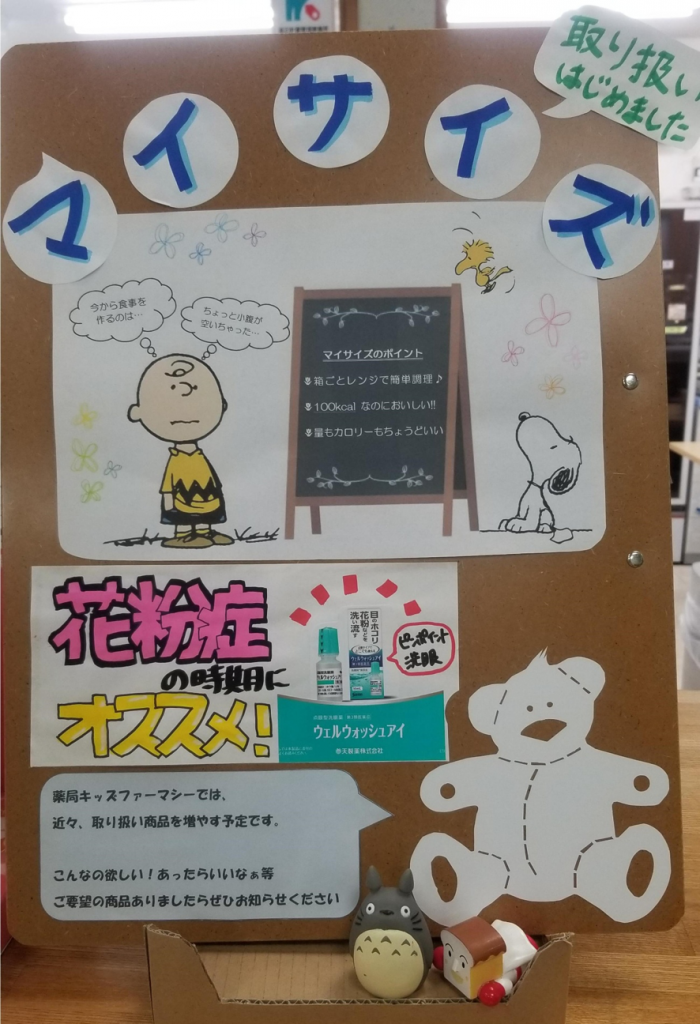 取り扱い
はじめました
マイサイズ
今から食事を
作るのは…
ちょっと小腹が
空いちゃった…
マイサイズのポイント
箱ごとレンジで簡単調理♪
100kcalなのにおいしい!!
量もカロリーもちょうどいい
花粉症
の時期に
オススメ!
目のホコリ
花粉などを
洗い流す
ウェルウォッシュアイ
ピンポイント
洗眼
ウェルウォッシュアイ
参天製薬株式会社
薬局キッズファーマシーでは、
近々、取り扱い商品を増やす予定です。
こんなの欲しい!あったらいいなぁ等
ご要望の商品ありましたらぜひお知らせください